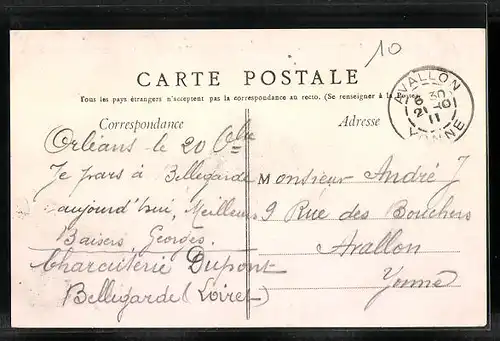 10
CARTE POSTALE
Tous les pays étrangers n'acceptent pas la correspondance au recto. (Se renseigner à la Poste)
Correspondance
Adresse
AVALLON
6 30
21 10
11
YONNE
Orléans le 20 8bre
Je pars à Bellegarde
aujourd'hui, Meilleurs
Baisers, Georges.
Charcuterie Dupont
Bellegarde (Loiret)
Monsieur André J
9 Rue des Bouchers
Avallon
Yonne